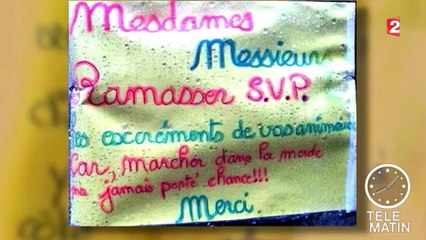 Mesdames
Messieur
Ramasser S.V.P.
les excréments de vos animaux
Car, marcher dans la merde
n'a jamais porté chance!!!
Merci.
2
TÉLÉ
MATIN